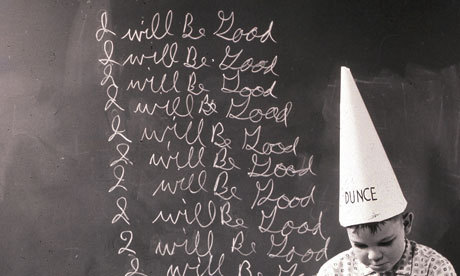 I will Be Good
I will Be Good
I will Be Good
I will Be Good
I will Be Good
I will Be Good
I will Be Good
I will Be Good
I will Be Good
I will Be Good
DUNCE